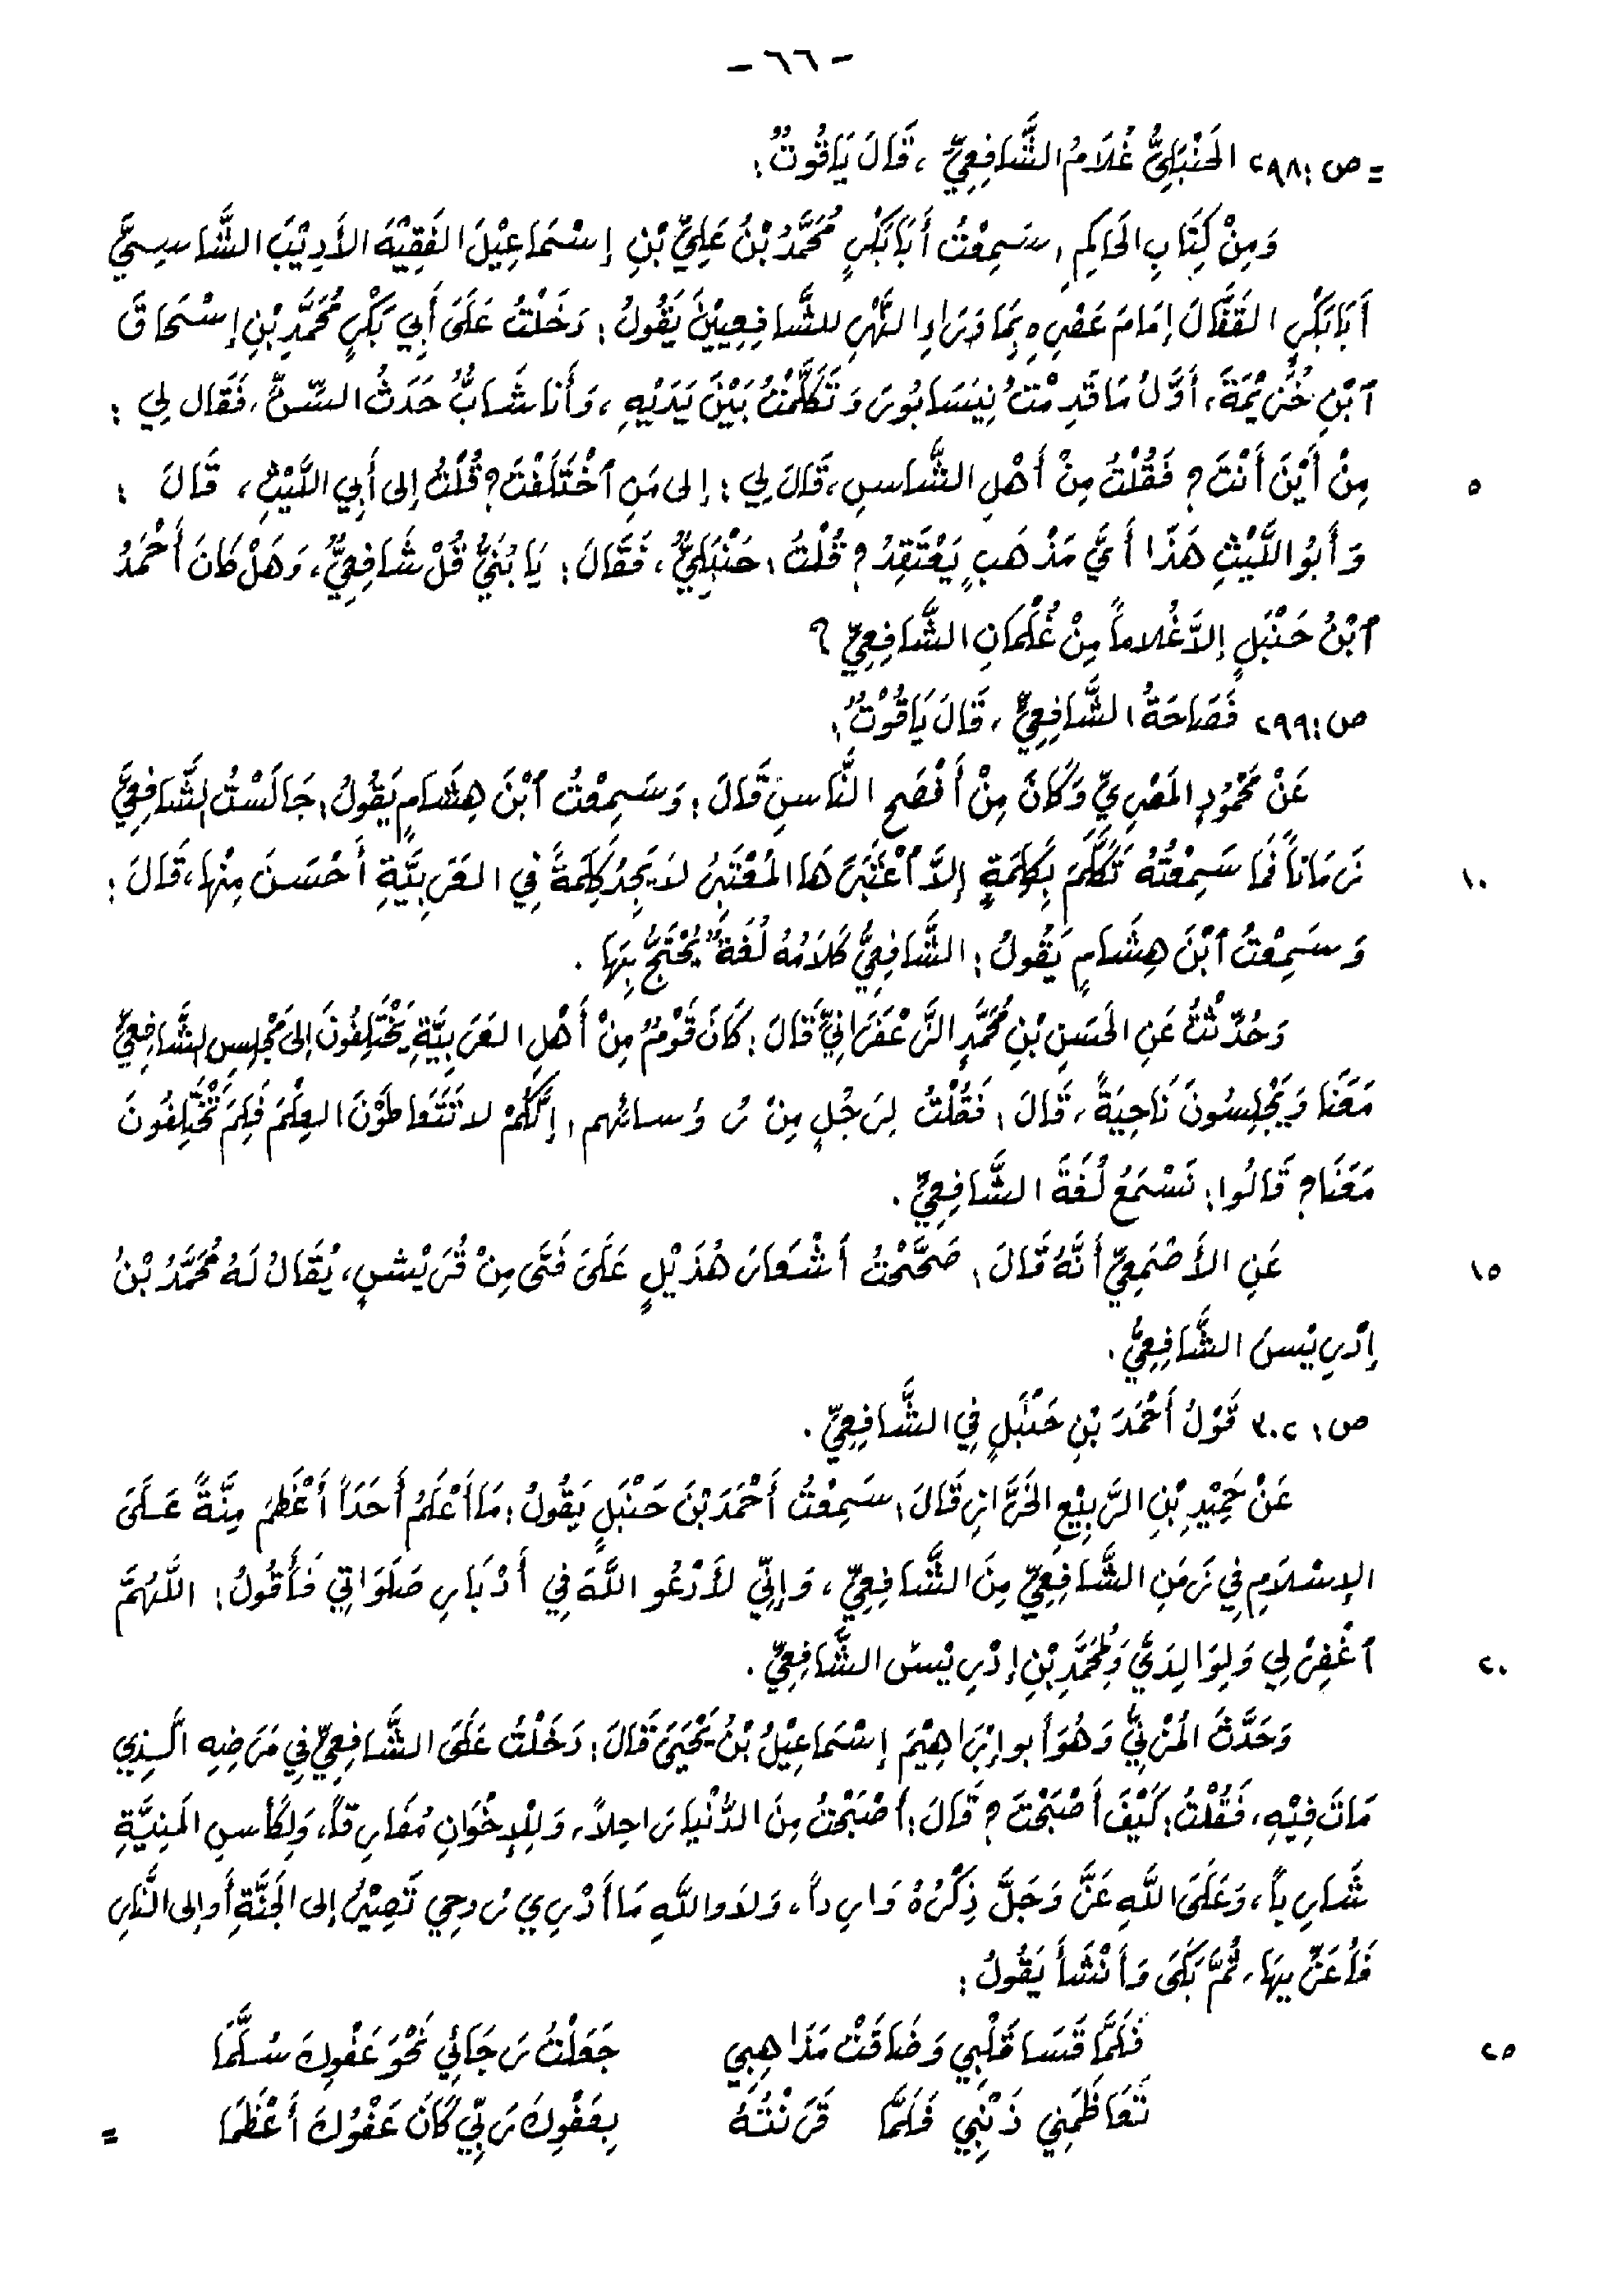 - ٦٦ -
= ص: ٢٩٨ الحَنْبَلِيُّ غُلَامُ الشَّافِعِيِّ، قَالَ يَاقُوتٌ:
وَمِنْ كِتَابِ الحَاكِمِ، سَمِعْتُ أَبَا بَكْرٍ مُحَمَّدُ بْنُ عَلِيِّ بْنِ إِسْمَاعِيْلَ الفَقِيْهَ الأَدِيْبَ الشَّاسِيَّ
أَبَا بَكْرٍ القَفَّالَ إِمَامَ عَصْرِهِ بِمَا وَرَاءِ النَّهْرِ للشَّافِعِيِيْنَ يَقُولُ: دَخَلْتُ عَلَى أَبِي بَكْرٍ مُحَمَّدِ بْنِ إِسْحَاقَ
ٱبْنِ خُزَيْمَةَ، أَوَّلُ مَا قَدِمْتُ نِيَسَابُورَ وَتَكَلَّمْتُ بَيْنَ يَدَيْهِ، وَأَنا شَابٌّ حَدَثُ السِّنِّ، فَقَال لِي:
مِنْ أَيْنَ أَنْتَ؟ فَقُلْتُ مِنْ أَهْلِ الشَّاسِ، قَالَ لِي: إلى مَنِ ٱخْتَلَفْتَ؟ قُلْتُ إلى أَبِي اللَّيْثِ، قَالَ: ٥
وَأَبُو اللَّيْثِ هَذَا أَيَّ مَذْهَبٍ يَعْتَقِدُ؟ قُلْتُ: حَنْبَلِيٌّ، فَقَالَ: يَا بُنَيَّ قُلْ شَافِعِيٌّ، وَهَلْ كَانَ أَحْمَدُ
ٱبْنُ حَنْبَلٍ إلاَّ غُلاماً مِنْ غُلْمَانِ الشَّافِعِيِّ؟
ص: ٢٩٩ فَصَاحَةُ الشَّافِعِيِّ، قَالَ يَاقُوْتٌ:
عَنْ مَحْمُودٍ المَصْرِيِّ وَكَانَ مِنْ أَفْصَحِ النَّاسِ قَالَ: وَسَمِعْتُ ٱبْنَ هِشَامٍ يَقُولُ: جَالَسْتُ الشَّافِعِيَّ
زَمَاناً فَمَا سَمِعْتُهُ تَكَلَّمَ بِكَلِمَةٍ إِلاَّ ٱعْتَبَرَهَا المُعْتَبِرُ لاَ يَجِدُ كَلِمَةً فِي العَرَبِيَّةِ أَحْسَنَ مِنْها، قَالَ: ١٠
وَسَمِعْتُ ٱبْنَ هِشَامٍ يَقُولُ: الشَّافِعِيُّ كَلَامُهُ لُغَةٌ يُحْتَجُّ بِهَا.
وَحُدِّثْتُ عَنِ الحَسَنِ بْنِ مُحَمَّدٍ الزَّعْفَرَانِيِّ قَالَ: كَانَ قَوْمٌ مِنْ أَهْلِ العَرَبِيَّةِ يَخْتَلِفُونَ إلى مَجْلِسِ الشَّافِعِيِّ
مَعَنَا وَيَجْلِسُونَ نَاحِيَةً، قَالَ: فَقُلْتُ لِرَجُلٍ مِنْ رُؤسائهم: إنَّكُمْ لا تَتَعَاطَوْنَ العِلْمَ فَلِمَ تَخْتَلِفُونَ
مَعَنَا؟ قَالُوا: نَسْمَعُ لُغَةَ الشَّافِعِيِّ.
عَنِ الأَصْمَعِيِّ أَنَّهُ قَالَ: صَحَّحْتُ أَشْعَارَ هُذَيْلٍ عَلَى فَتَى مِنْ قُرَيْشٍ، يُقَالُ لَهُ مُحَمَّدُ بْنُ ١٥
إدْرِيْسَ الشَّافِعِيُّ.
ص: ٣٠٢ قَوْلُ أَحْمَدَ بْنِ حَنْبَلٍ فِي الشَّافِعِيِّ.
عَنْ حَمِيْدِ بْنِ الرَّبِيْعِ الخَزَّازِ قَالَ: سَمِعْتُ أَحْمَدَ بْنَ حَنْبَلٍ يَقُولُ: مَا أَعْلَمُ أَحَدَاً أَعْظَمَ مِنَّةً عَلَى
الإِسْلَامِ فِي زَمَنِ الشَّافِعِيِّ مِنَ الشَّافِعِيِّ، وَإِنِّي لأَدْعُو اللَّهَ فِي أَدْبَارِ صَلَوَاتِي فَأَقُولُ: اللَّهُمَّ
ٱغْفِرْ لِي وَلِوَالِدَيَّ وَلِمُحَمَّدِ بْنِ إدْرِيْسَ الشَّافِعِيِّ. ٢٠
وَحَدَّثَ المُزنِيُّ وَهُوَ أبو إبْرَاهِيْمَ إسْمَاعِيْلُ بْنُ يَحْيَى قَالَ: دَخَلْتُ عَلَى الشَّافِعِيِّ فِي مَرَضِهِ الَّذِي
مَاتَ فِيْهِ، فَقُلْتُ: كَيْفَ أَصْبَحْتَ؟ قَالَ: أَصْبَحْتُ مِنَ الدُّنْيَا رَاحِلاً، وَلِلْإخْوَانِ مُفَارِقاً، وَلِكَأْسِ المَنِيَّةِ
شَارِباً، وَعَلَى اللَّهِ عَزَّ وَجَلَّ ذِكْرُهُ وَارِداً، وَلاَ واللَّهِ مَا أَدْرِي رُوحِي تَصِيْرُ إلى الجَنَّةِ أَو إلى النَّارِ
فَأُعَزِّيهَا، ثُمَّ بَكَى وَأَنْشَأَ يَقُولُ:
فَلَمَّا قَسَا قَلْبِي وَضَاقَتْ مَذَاهِبِي جَعَلْتُ رَجَائِي نَحْوَ عَفْوِكَ سُلَّمَا ٢٥
تَعَاظَمَنِي ذَنْبِي فَلَمَّا قَرَنْتُهُ بِعَفْوِكَ رَبِّي كَانَ عَفْوُكَ أَعْظَمَا =